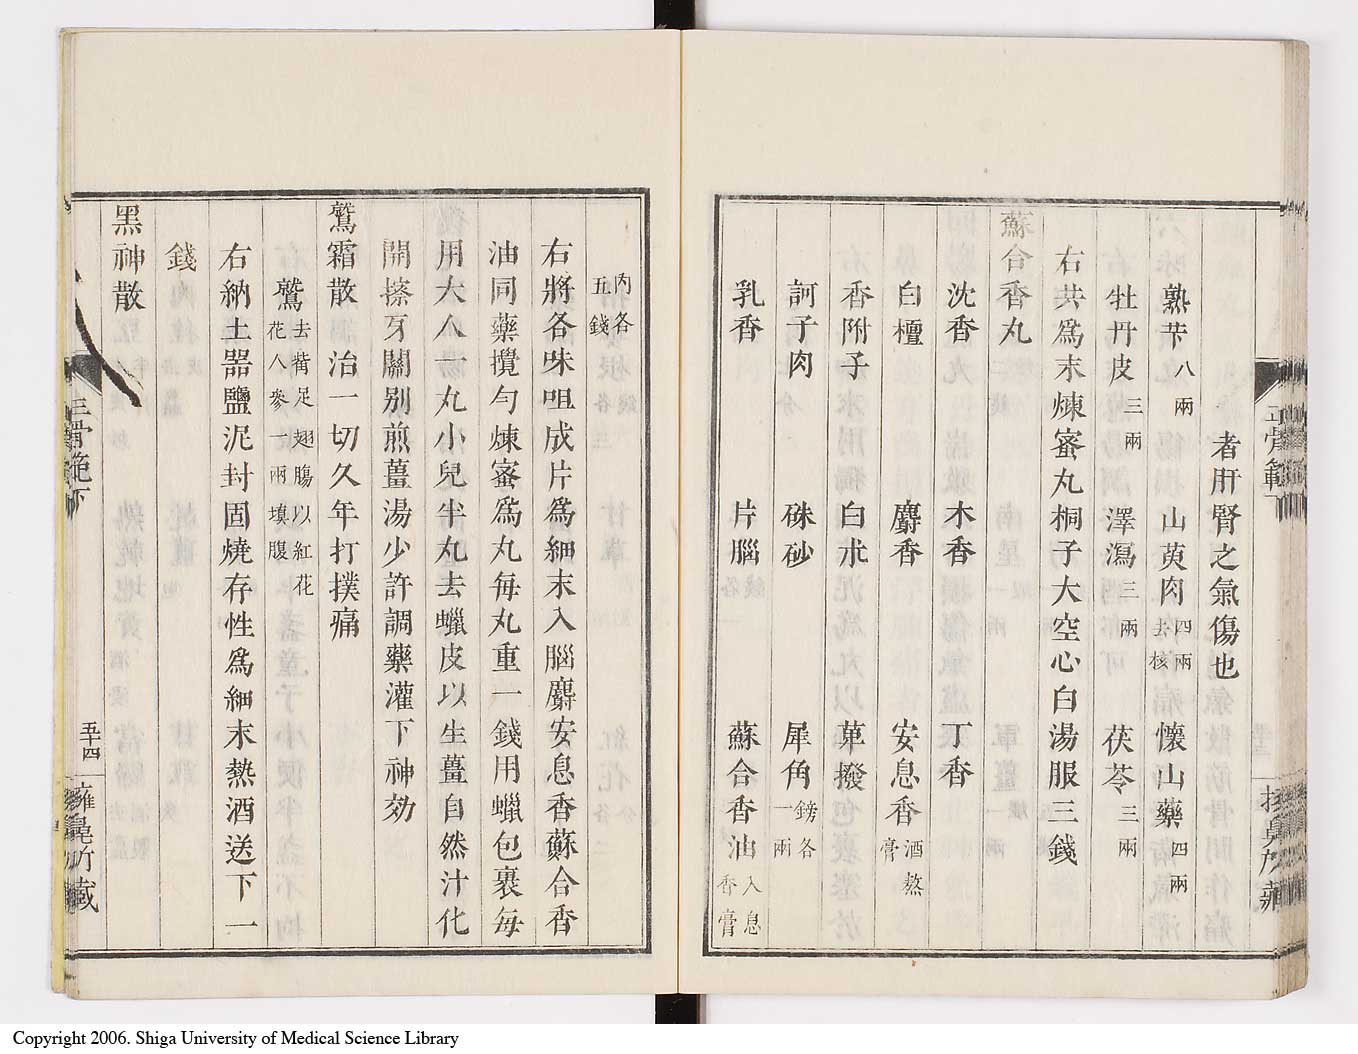 者肝腎之氣傷也
熟芐八兩 山萸肉四兩去核 懷山藥四兩
牡丹皮三兩 澤瀉三兩 茯苓三兩
右共爲末煉蜜丸桐子大空心白湯服三錢
蘇合香丸
沈香 木香 丁香
白檀 麝香 安息香酒熬膏
香附子 白朮 蓽撥
訶子肉 硃砂 犀角鎊各一兩
乳香 片腦 蘇合香油入息香膏
內各五錢
右將各味咀成片爲細末入腦麝安息香蘇合香
油同藥攪勻煉蜜爲丸每丸重一錢用蠟包裹每
用大人一丸小兒半丸去蠟皮以生薑自然汁化
開擦牙關別煎薑湯少許調藥灌下神効
鷲霜散治一切久年打撲痛
鷲去觜足翅腸以紅花花人參一兩填腹
右納土器鹽泥封固燒存性爲細末熱酒送下一
錢
黑神散
正骨範下
五十四
Copyright 2006. Shiga University of Medical Science Library